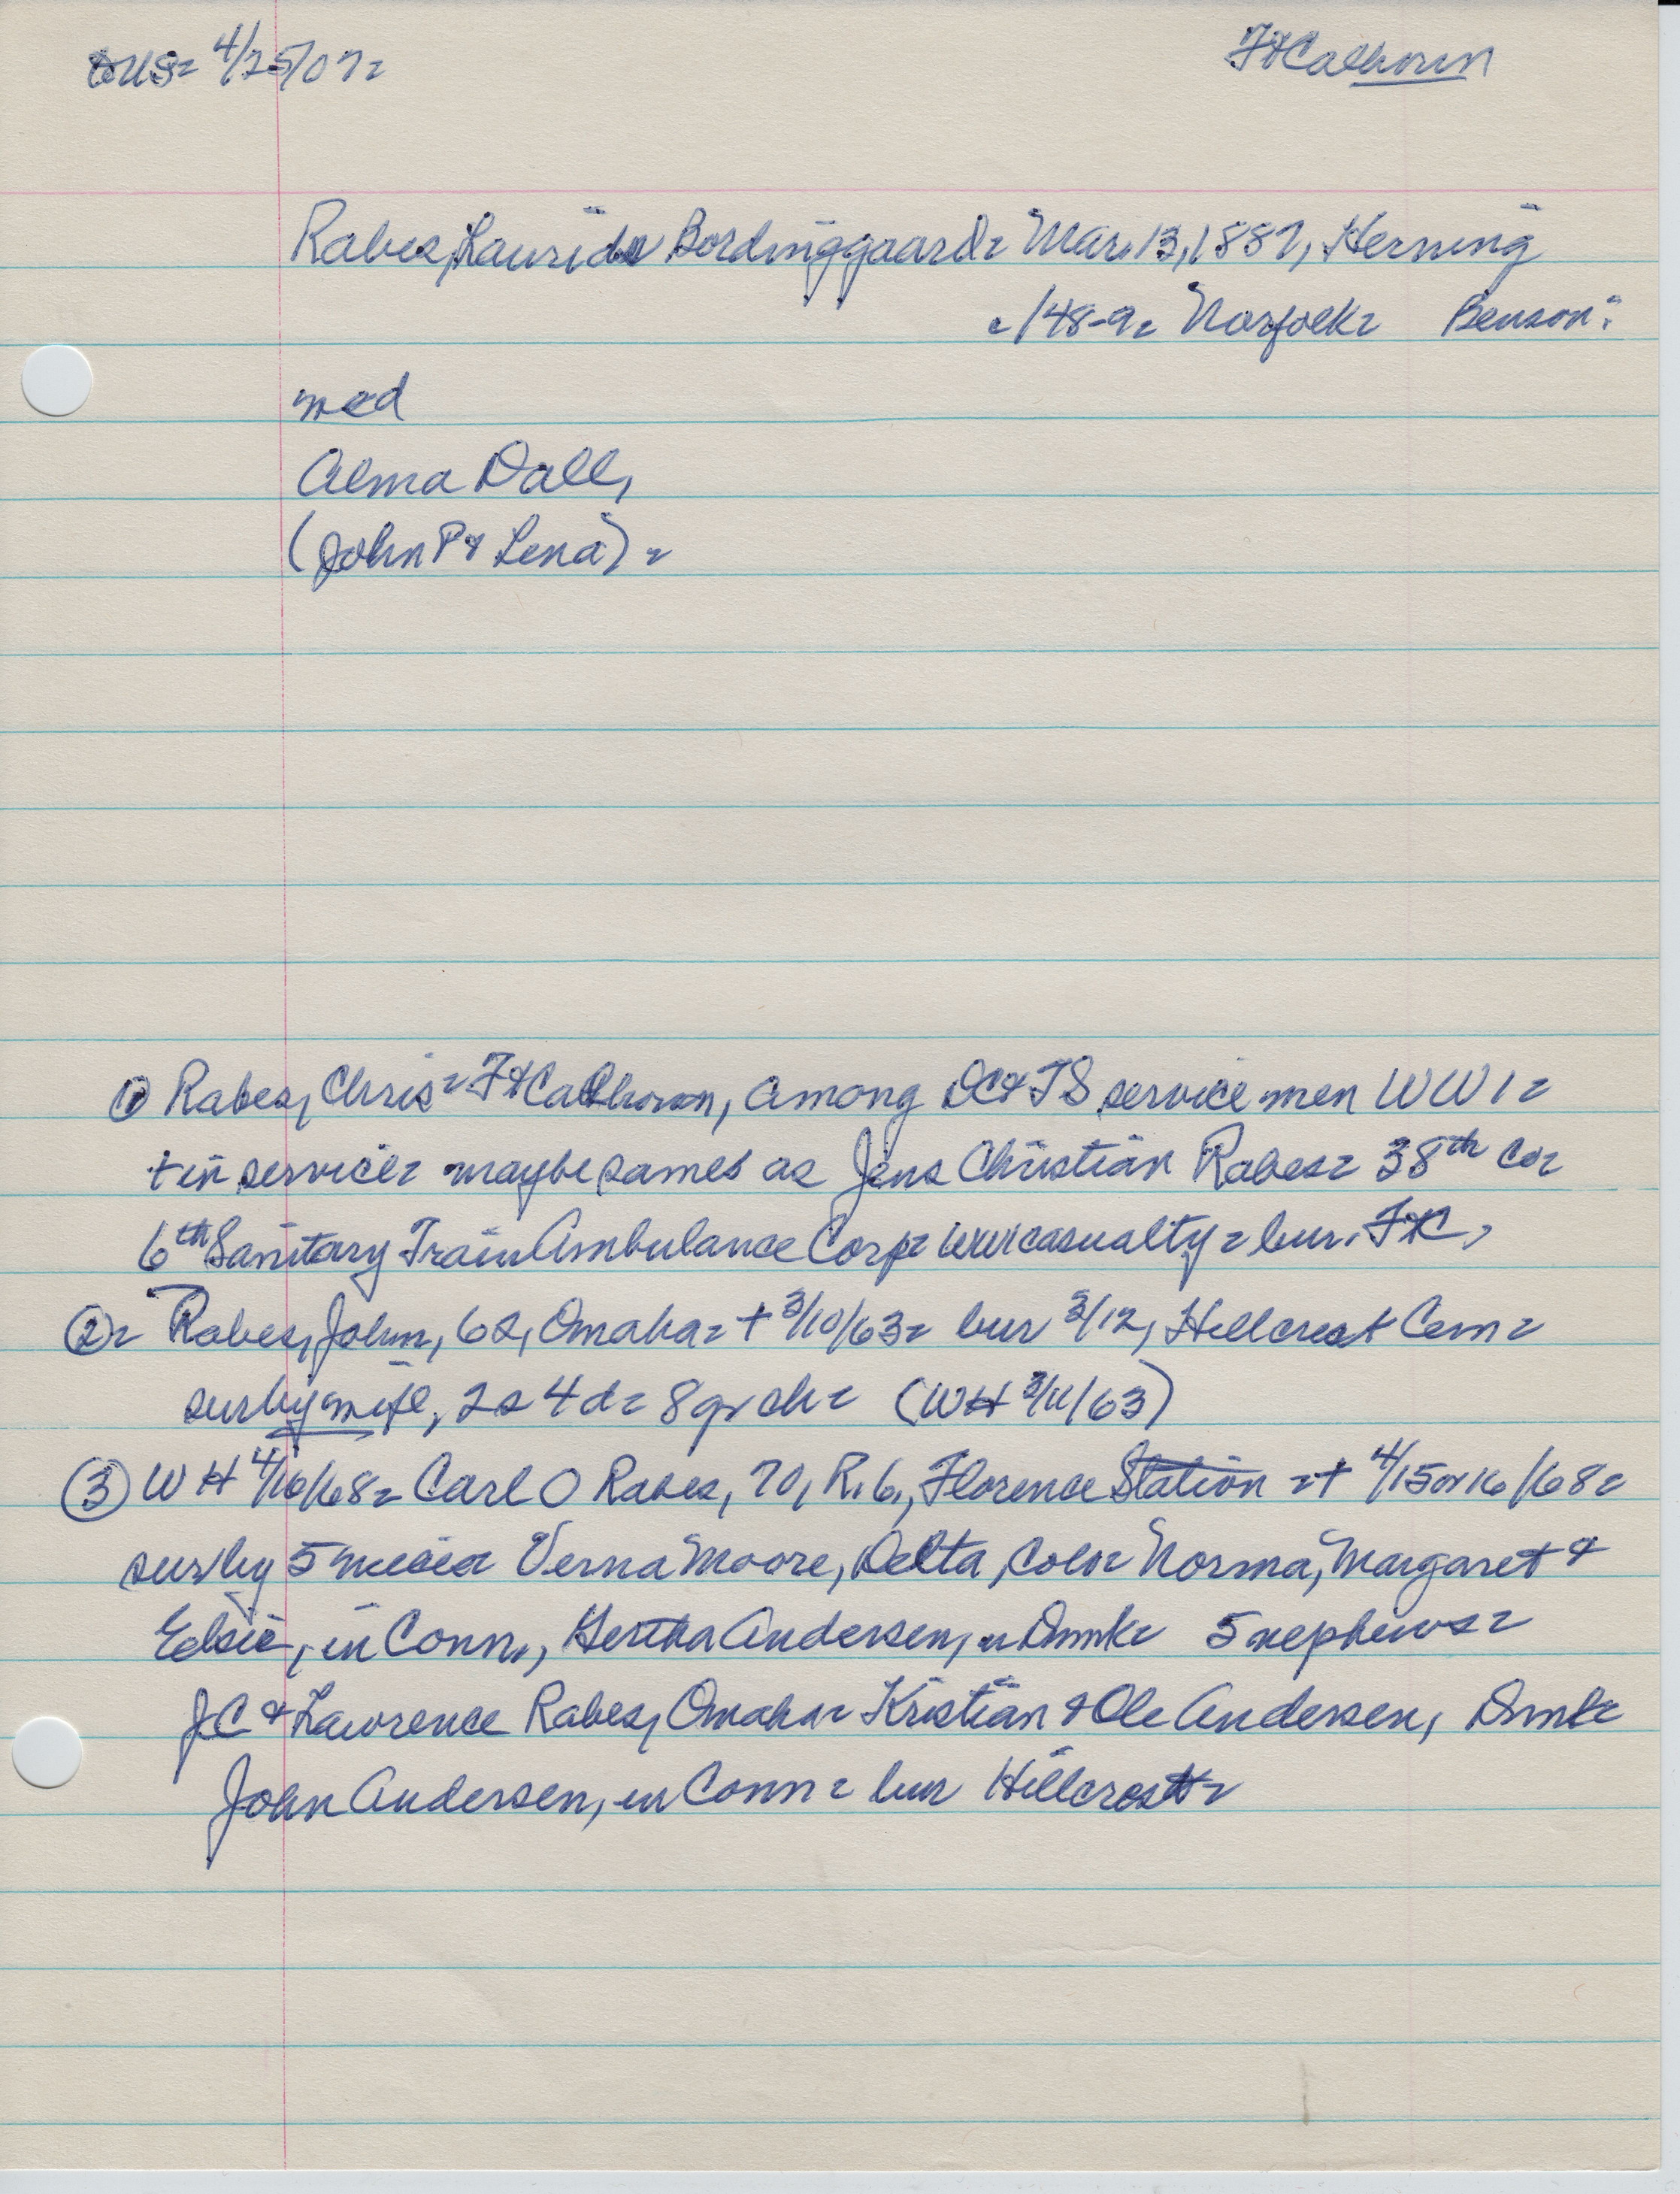 4/25/07= Ft Calhoun
Rabes, Laurids Bordinggaard= Mar. 13, 1887, Herning
=/48-9= Norfolk= Benson=
med
Alma Dall,
(John P & Lena)=
① Rabes, Chris= Ft Calhoun, among DC & TS service men WW1=
+ in service= maybe sames as Jens Christian Rabes= 38th Co=
6th Sanitary Train Ambulance Corp= WWI casualty= bur. FtC,
②= Rabes, John, 62, Omaha= + 3/10/63= bur 3/12, Hillcrest Cem=
surby wife, 2s 4d= 8 gr ch= (WH 3/11/63)
③ WH 4/16/68= Carl O Rabes, 70, R. 6., Florence Station =+ 4/15 or 16/68=
surby 5 nieces Verna Moore, Delta, Colo= Norma, Margaret &
Elsie, in Conn., Hertha Andersen, in Dmk= 5 nephews=
JC & Lawrence Rabes, Omaha= Kristian & Ole Andersen, Dmk=
John Andersen, in Conn= bur Hillcrest=